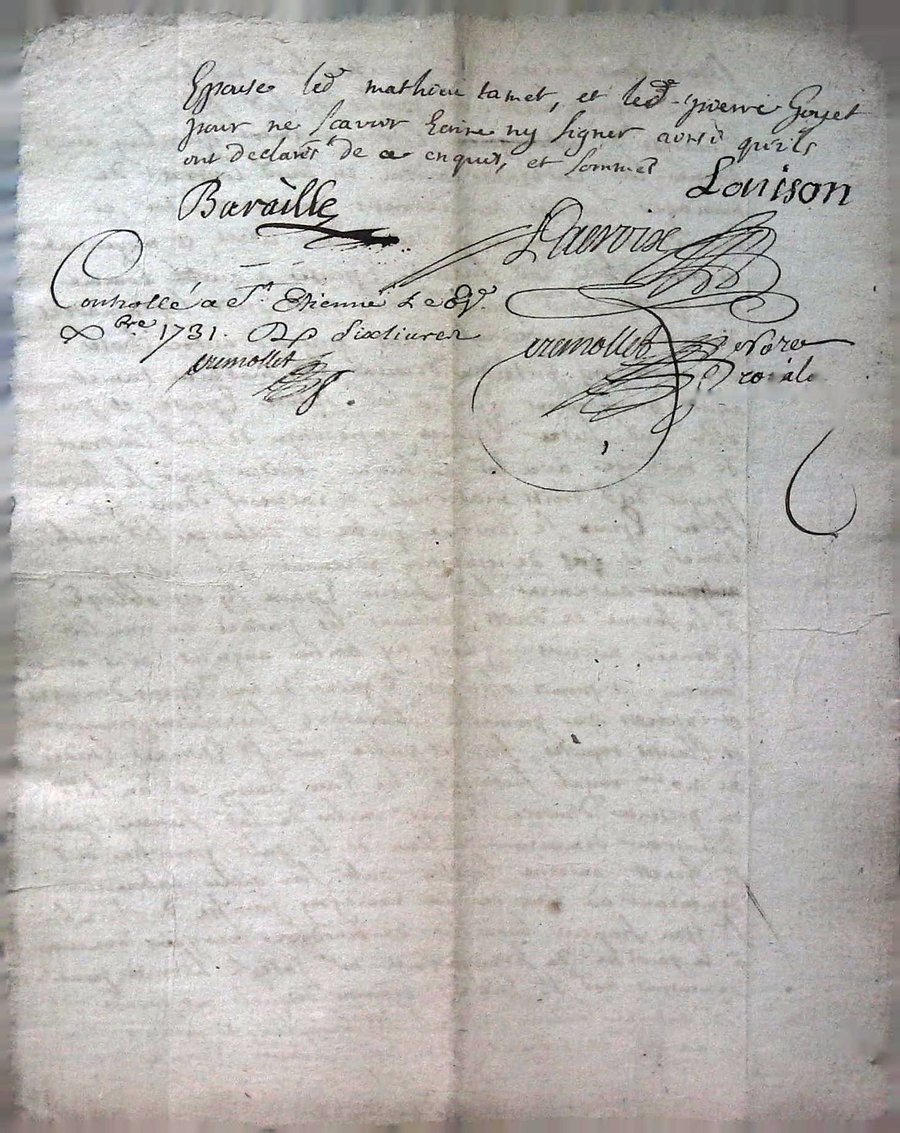 Epouse led. mathieu tamet, et led. pierre Goyet
pour ne scavoir Ecrire ny signer ainsi quils
ont declarés de ce enquis, et sommés
Louison
Baraille
Lacroix
Controllé a St. Etienne Le
xbre 1731. sixlivres
cremollet
cremollet nore
royal